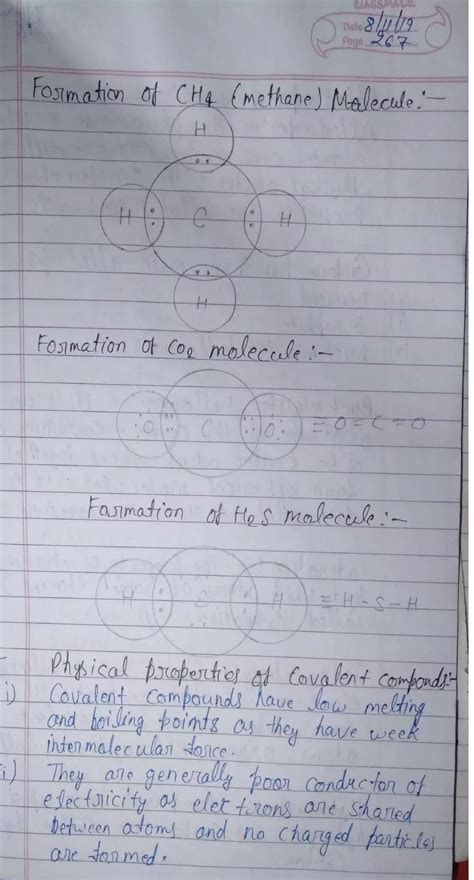 CLASSMATE
Date 8/11/19
Page 267
Formation of CH4 (methane) Molecule:-
H
H C H
H
Formation of CO2 molecule:-
O C O = O = C = O
Formation of H2S molecule:-
H C H = H - S - H
Physical properties of Covalent componds:-
i) Covalent compounds have low melting
and boiling points as they have week
intermolecular force.
i) They are generally poor conductor of
electricity as elektrons are shared
between atoms and no charged particles
are formed.